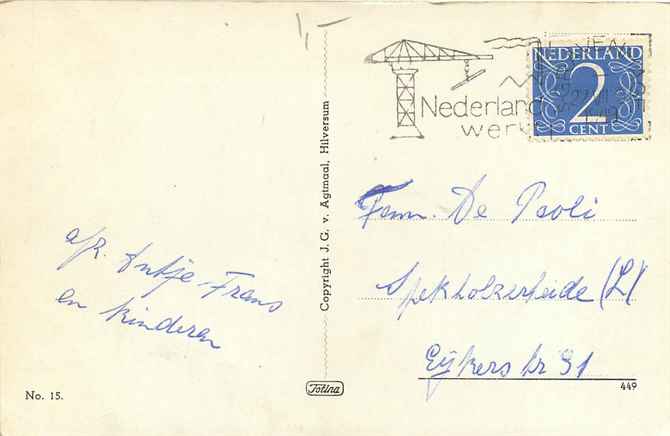 NEDERLAND
2
CENT
Nederland
werkt
Fam. De Paoli
Spekholzerheide (L)
Eijkerstr 91
afz. Antje-Frans
en kinderen
Copyright J. G. v. Agtmaal, Hilversum
No. 15.
449